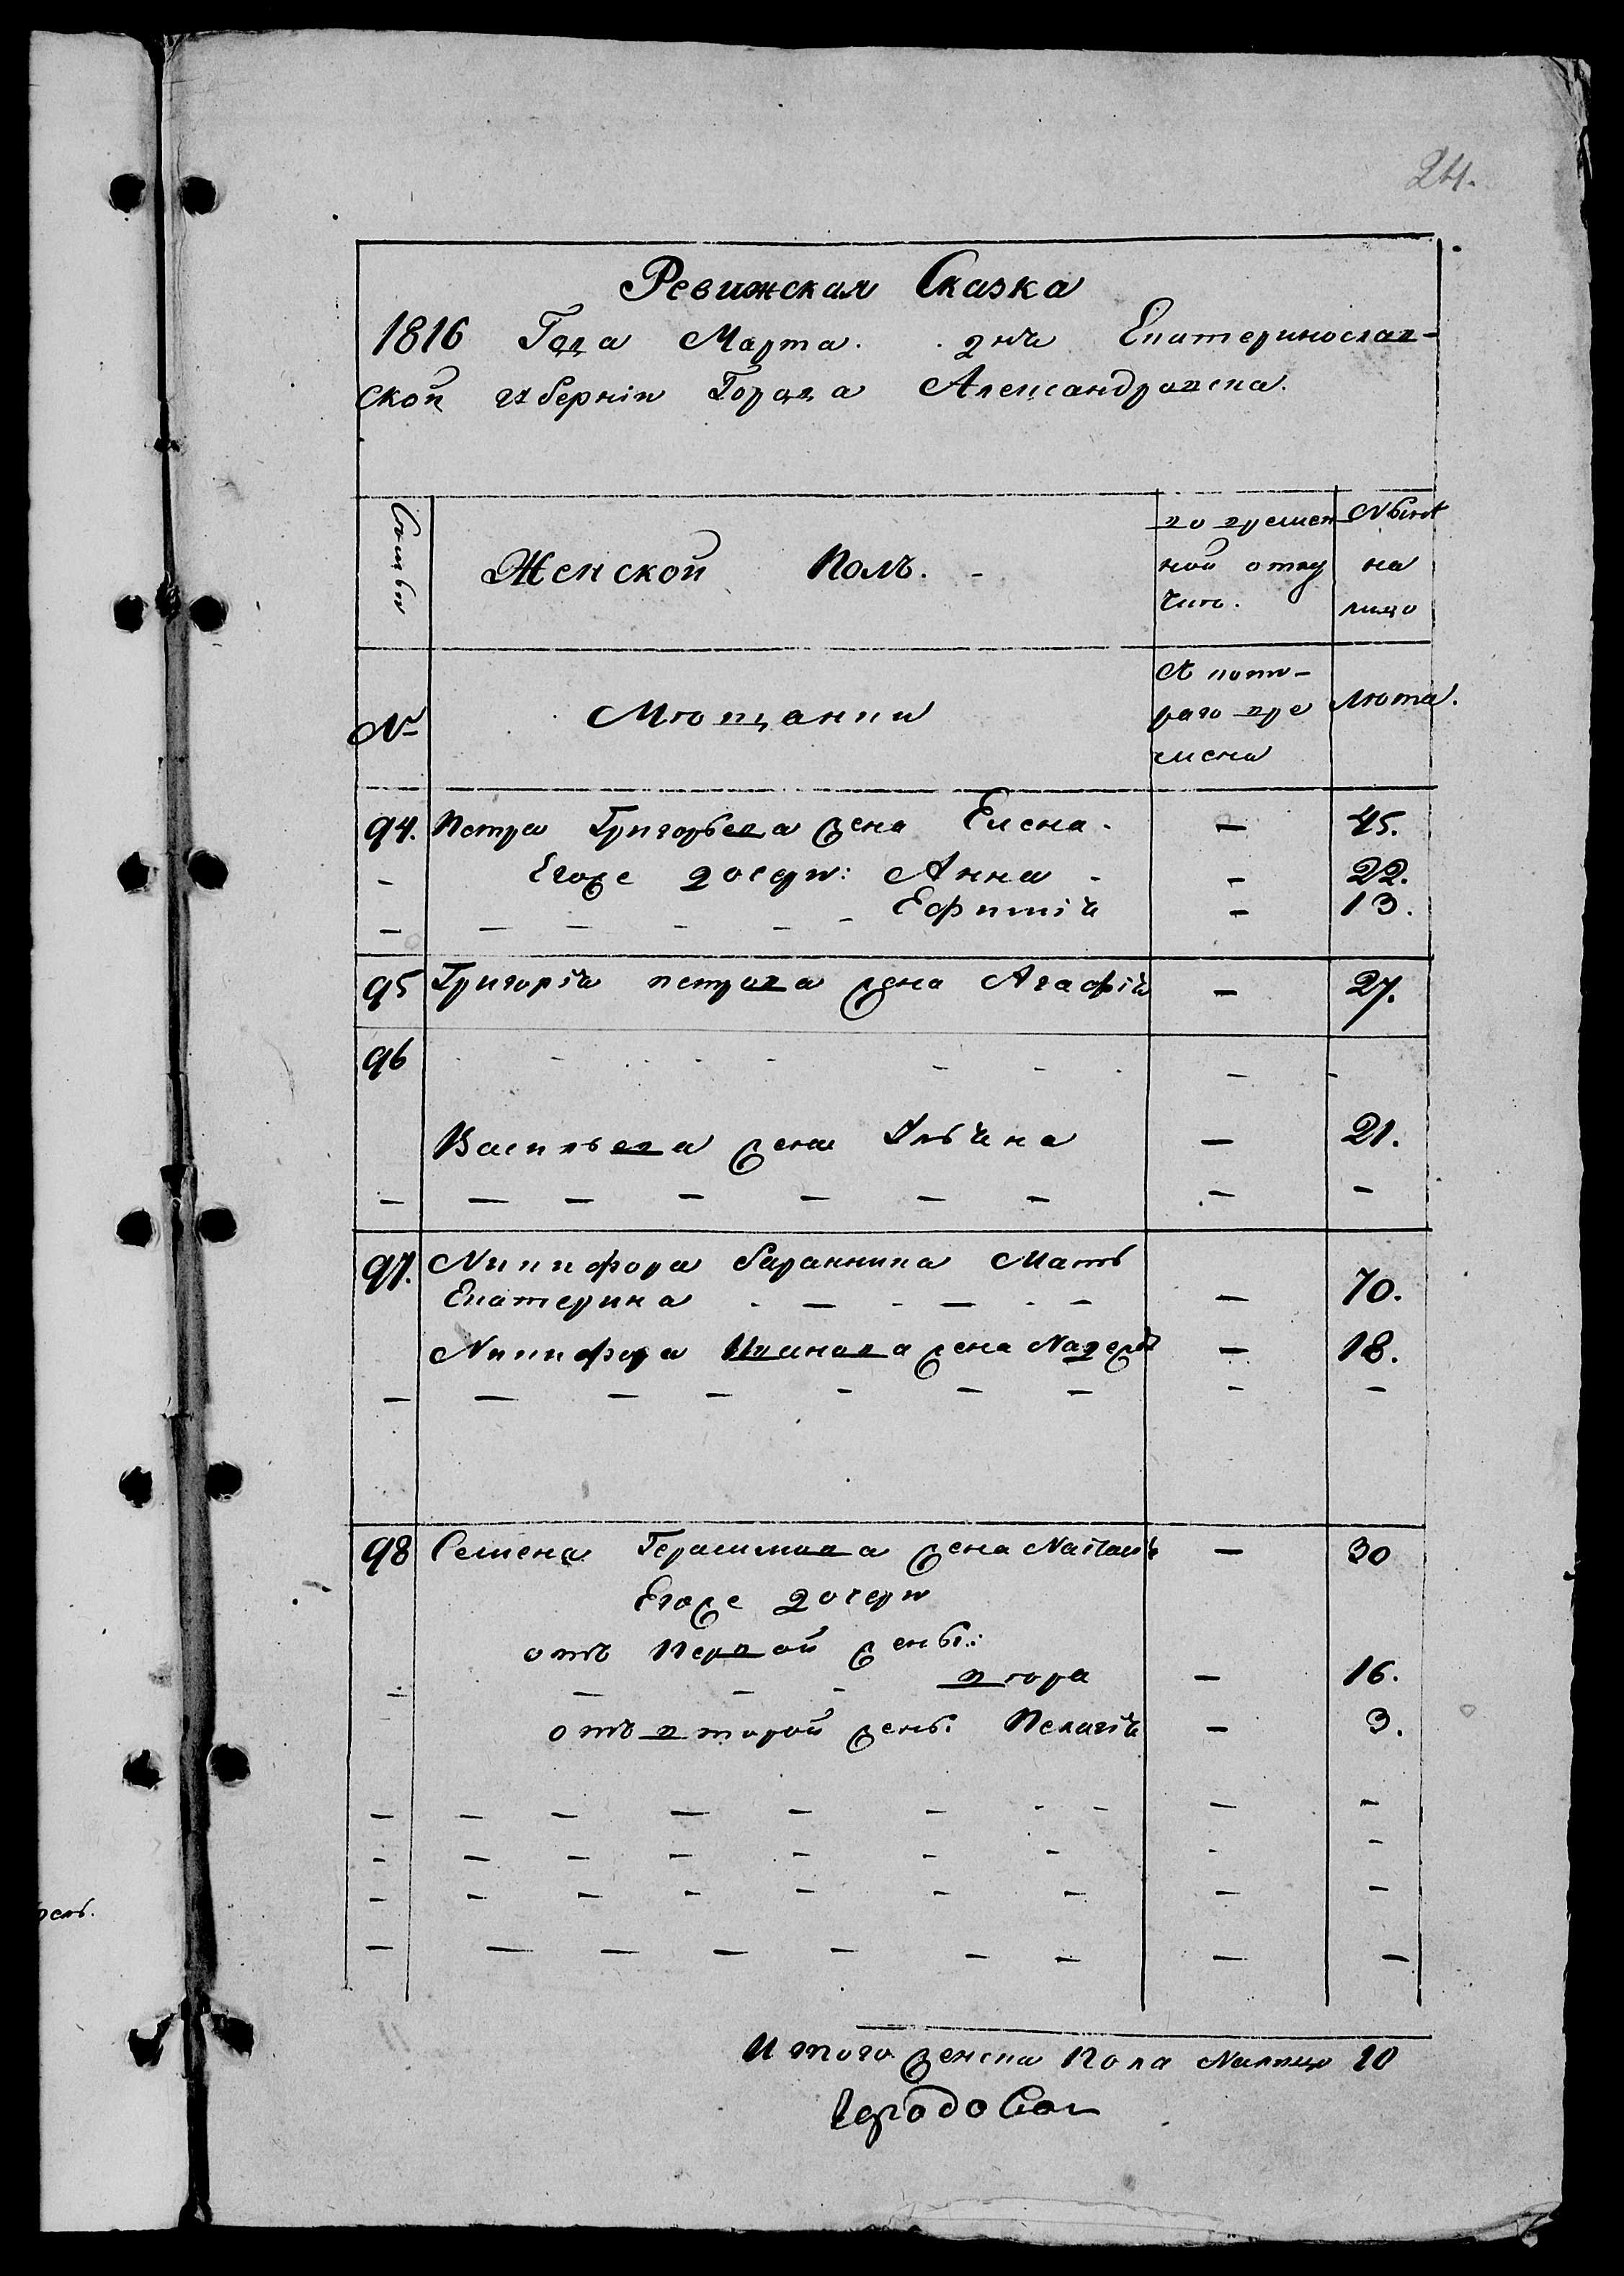 24.
Ревижская Сказка
1816 Года Марта. дня Екатеринослав-
ской губерніи Города Александровска.
Семьи
Женской Полъ. -
во времен
ной отлу
чкѣ.
Нынѣ
на
лицо
№
Мѣщанки
Съ кото-
раго вре
мени
Лѣта.
94. Петра Григорьева жена Елена. — 45.
- Егоже дочери: Анна - - 22.
- - - - - - Ефимія - 13.
95 Григорія петрова жена Агафія — 27.
96 - - - - - - - -
Васильева жена Ульяна — 21.
- - - - - - - - -
97. Никифора баранника Мать
Екатерина - - - - - — 70.
Никифора Иванова жена — 18.
- - - - - - - - -
98 Семена Герасимова жена Наталья — 30
Егоже дочери
отъ первой жены:
- - - - вѣра — 16.
отъ второй жены: Пелагія — 3.
- - - - - - - - -
- - - - - - - - -
- - - - - - - - -
- - - - - - - - -
Итого женска пола Налицо 10